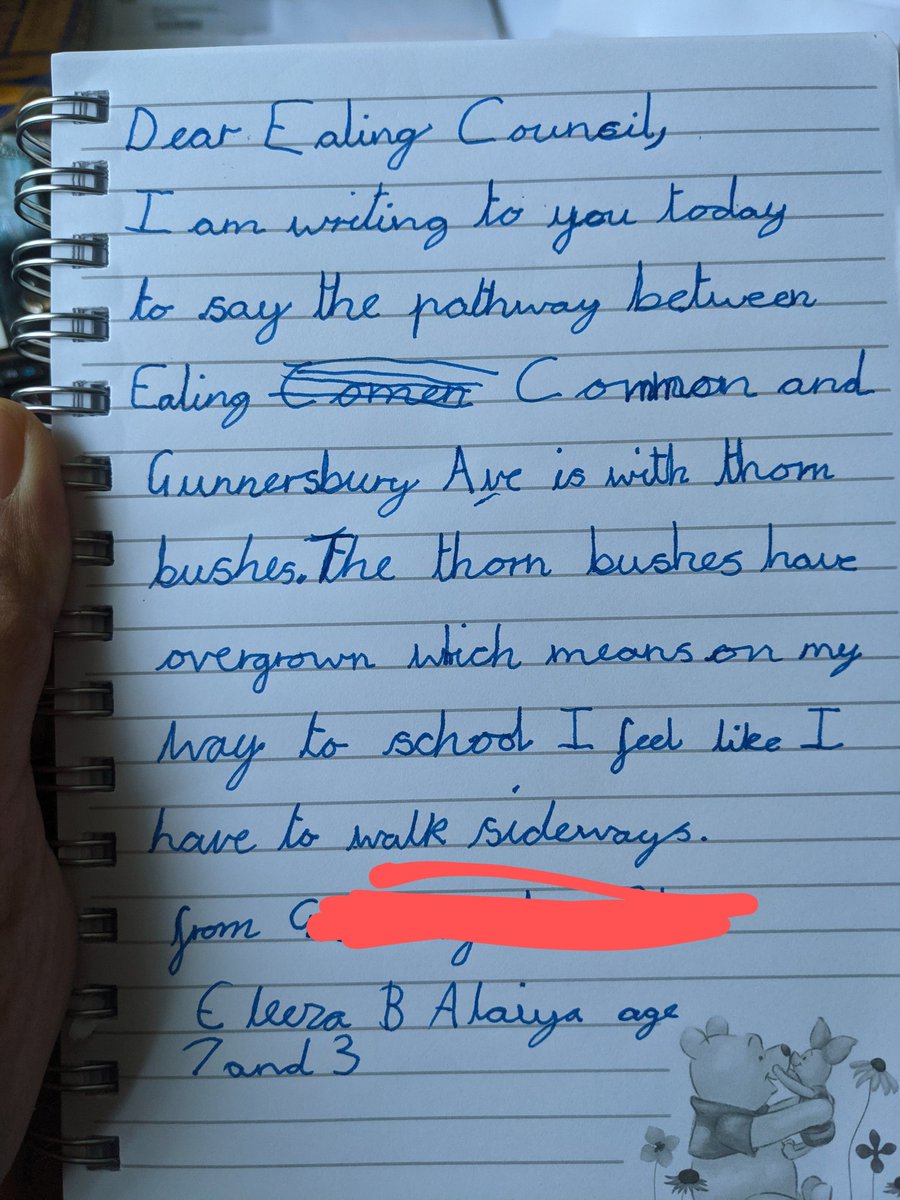 Dear Ealing Council,
I am writing to you today
to say the pathway between
Ealing Comen Common and
Gunnersbury Ave is with thorn
bushes. The thorn bushes have
overgrown which means on my
way to school I feel like I
have to walk sideways.
from
Eleeza B Alaiya age
7 and 3